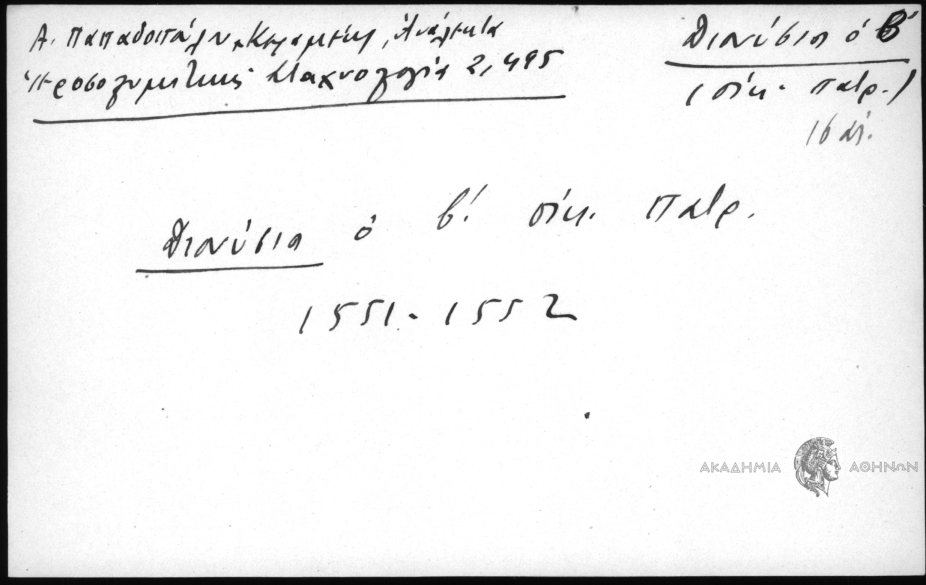 Α. Παπαδοπούλου Κεραμέως, Ἀνάλεκτα
Ἱεροσολυμιτικῆς Σταχυολογίας 2, 495
Διονύσιος ὁ Β΄
(οἰκ. πατρ.)
16 αἰ.
Διονύσιος ὁ β΄. οἰκ. Πατρ.
1551-1552
ΑΚΑΔΗΜΙΑ ΑΘΗΝΩΝ